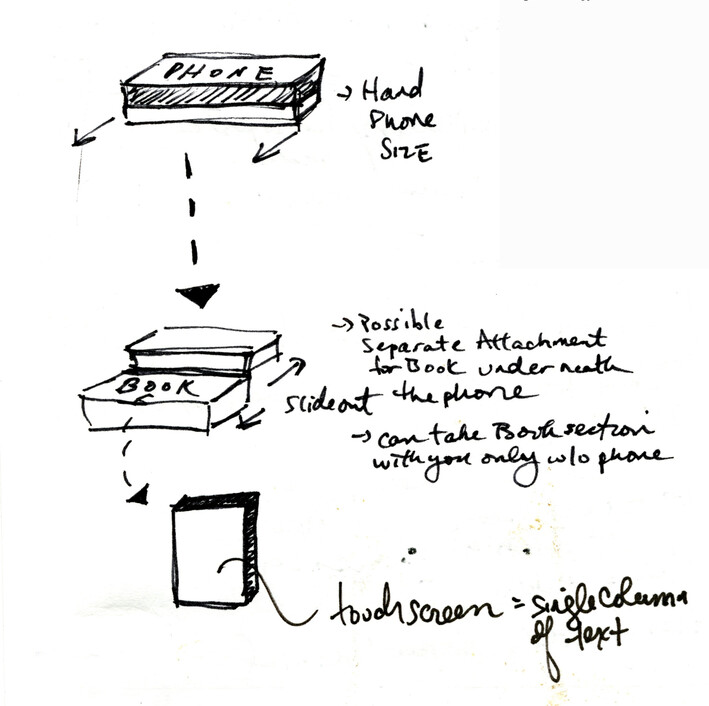 PHONE
→ Hand
Phone
SIZE
→ Possible
Separate Attachment
for Book underneath
the phone
BOOK
slideout
→ can take Book section
with you only w/o phone
touchscreen = single column
of text